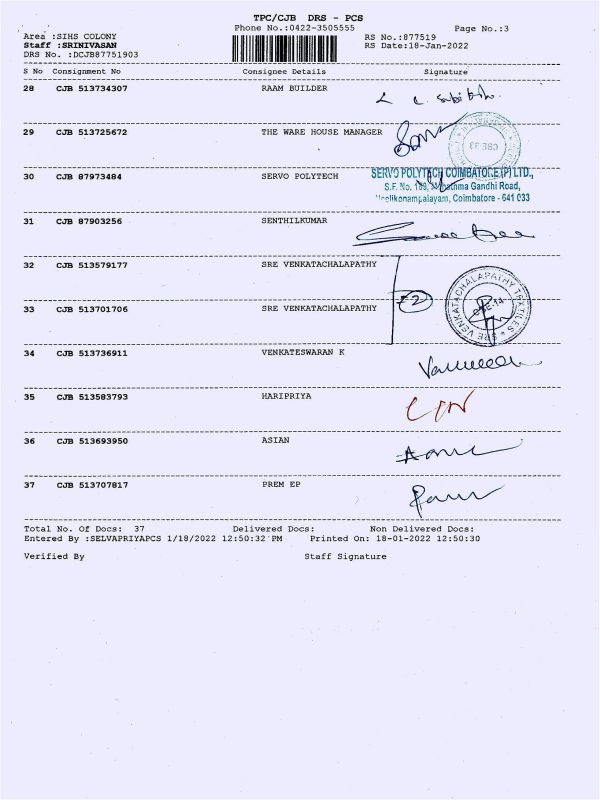 TPC/CJB DRS - PCS
Phone No.:0422-3505555 Page No.:3
Area :SIHS COLONY RS No.:877519
Staff :SRINIVASAN RS Date:18-Jan-2022
DRS No. :DCJB87751903
S No Consignment No Consignee Details Signature
28 CJB 513734307 RAAM BUILDER
29 CJB 513725672 THE WARE HOUSE MANAGER
CBE 33
30 CJB 87973484 SERVO POLYTECH SERVO POLYTECH COIMBATORE (P) LTD.,
S.F. No. 169, Mahathma Gandhi Road,
Neelikonampalayam, Coimbatore - 641 033
31 CJB 87903256 SENTHILKUMAR
32 CJB 513579177 SRE VENKATACHALAPATHY
SRE VENKATACHALAPATHY TEXTILES
CBE-14
33 CJB 513701706 SRE VENKATACHALAPATHY 2
34 CJB 513736911 VENKATESWARAN K
35 CJB 513583793 HARIPRIYA
36 CJB 513693950 ASIAN
37 CJB 513707817 PREM EP
Total No. Of Docs: 37 Delivered Docs: Non Delivered Docs:
Entered By :SELVAPRIYAPCS 1/18/2022 12:50:32 PM Printed On: 18-01-2022 12:50:30
Verified By Staff Signature